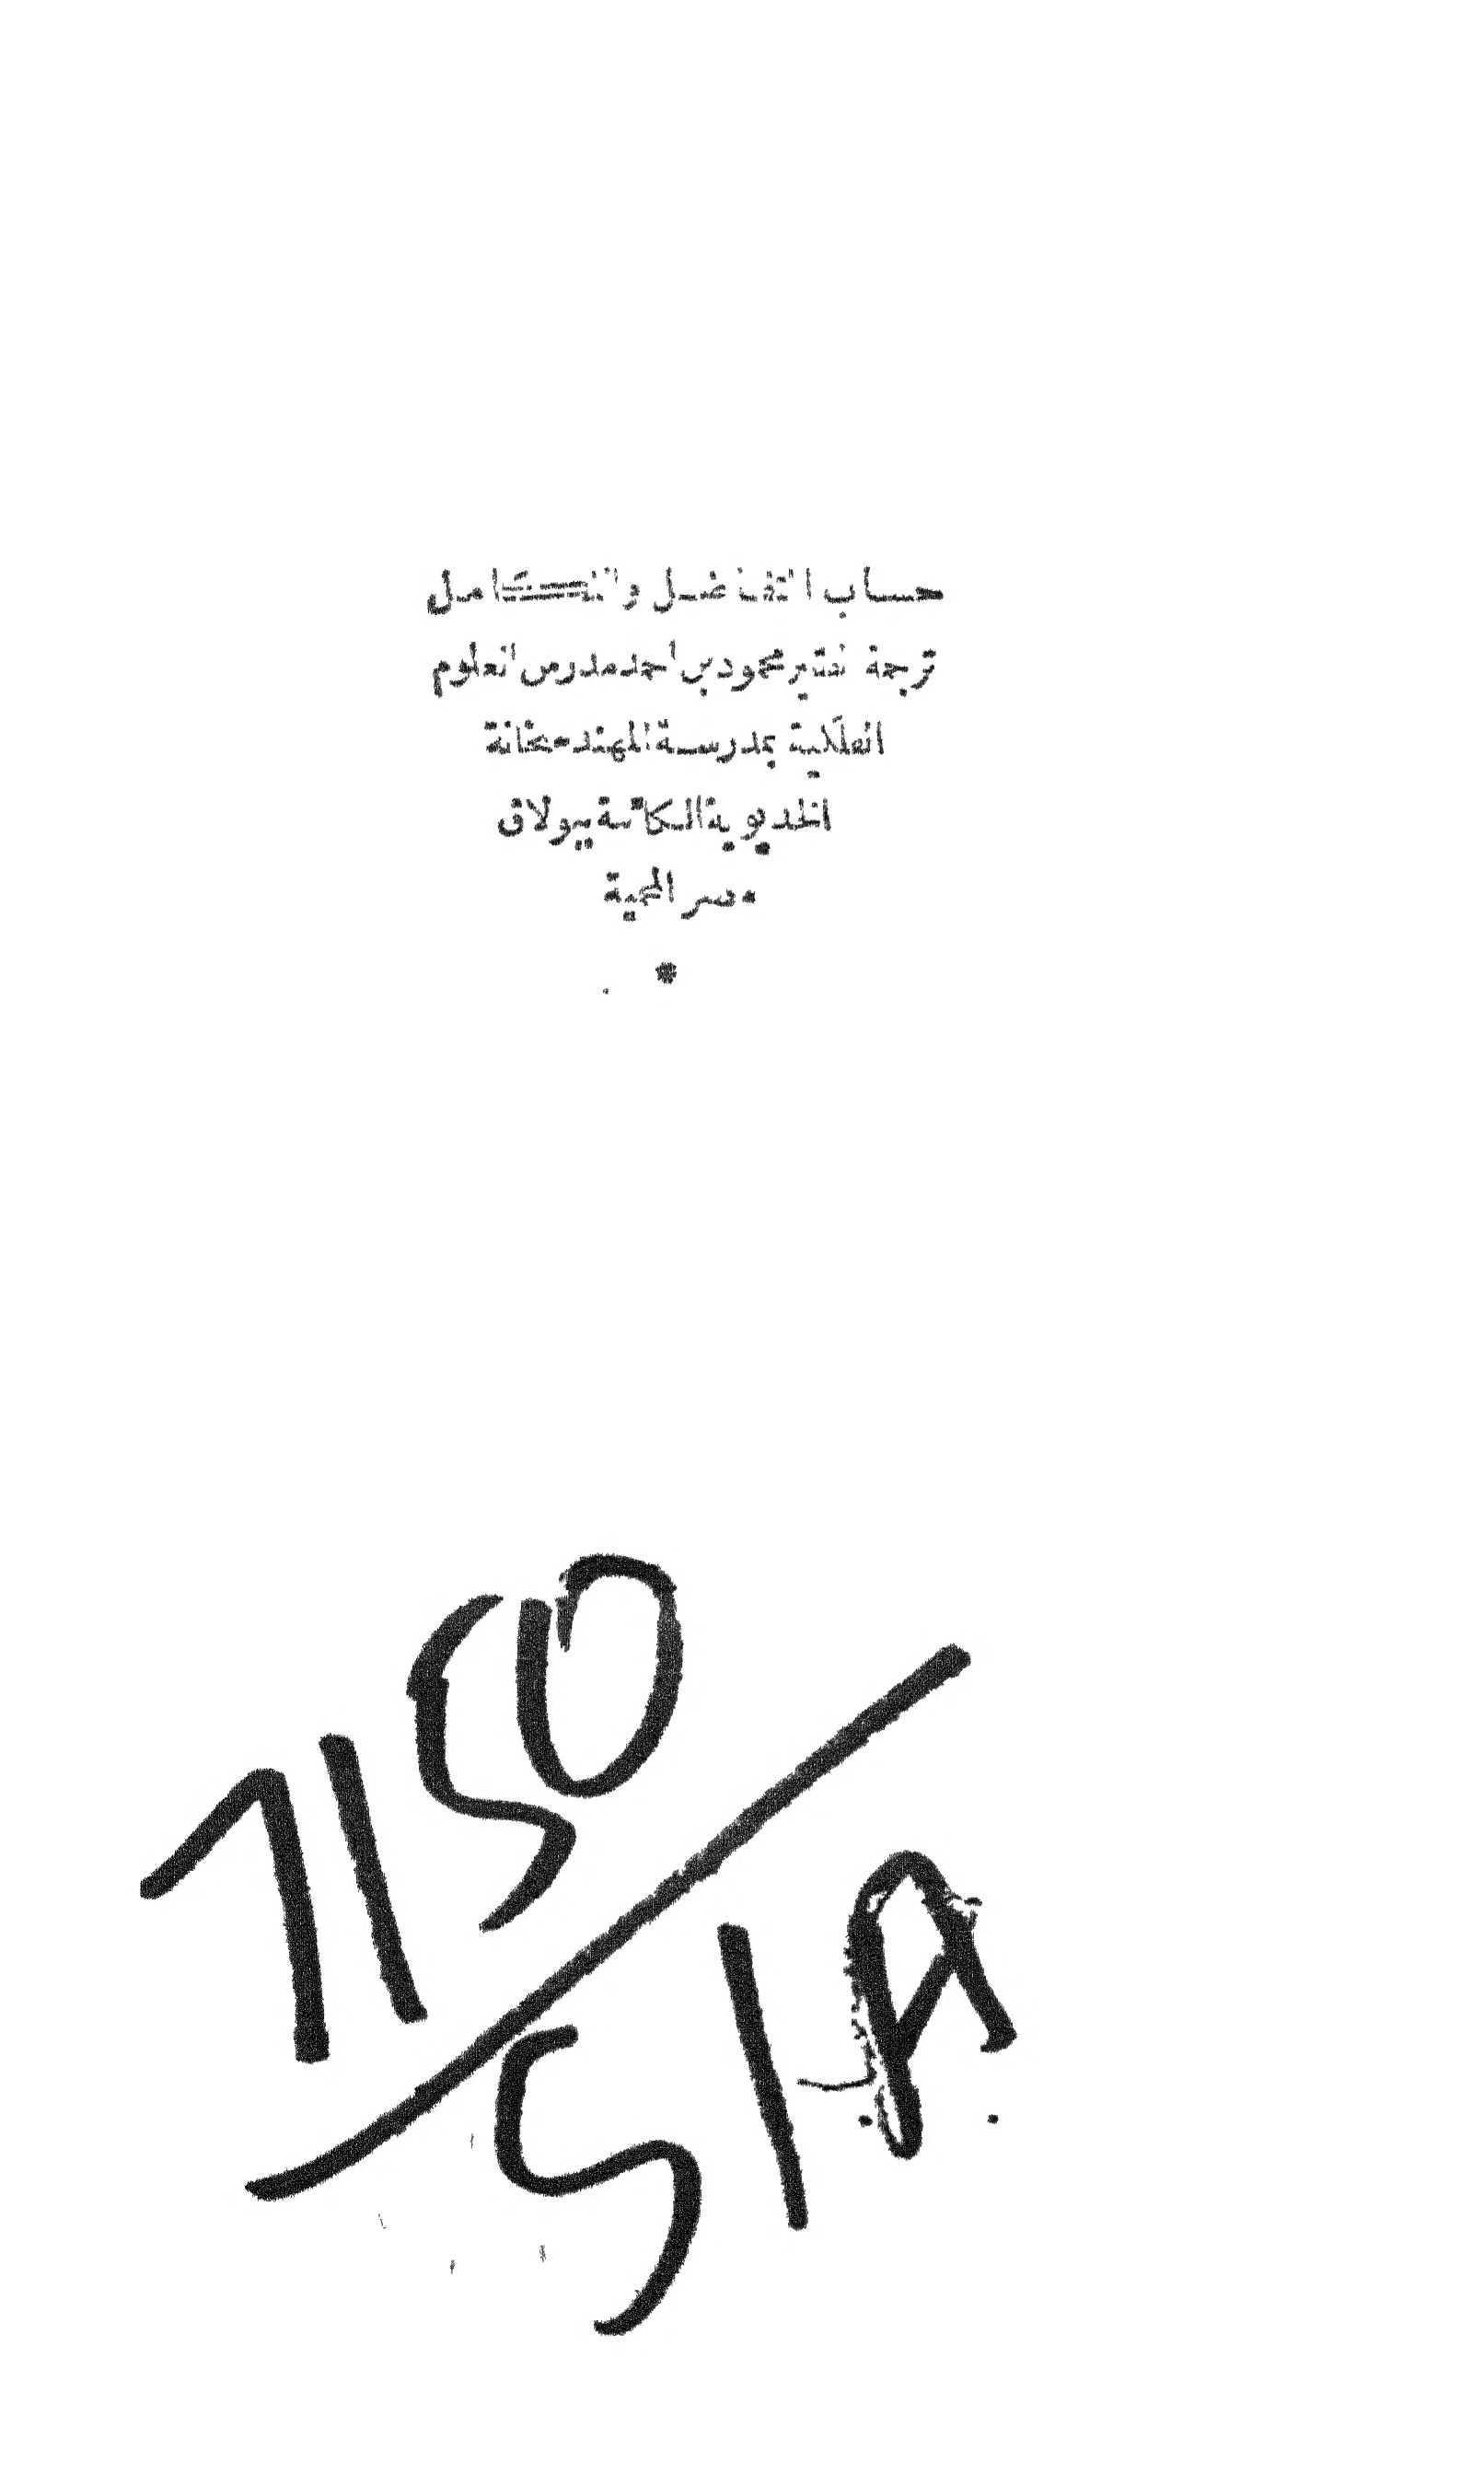 حساب التفاضل والتكامل
ترجمة الفقير محمود بن احمد مدرس العلوم
الفلكية بمدرسة المهندسخانة
الخديوية الكائنة ببولاق
مصر المحمية
*